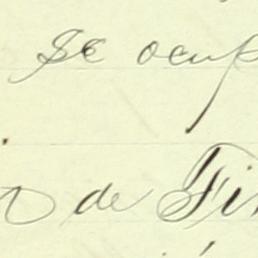 se ocup
de Fin